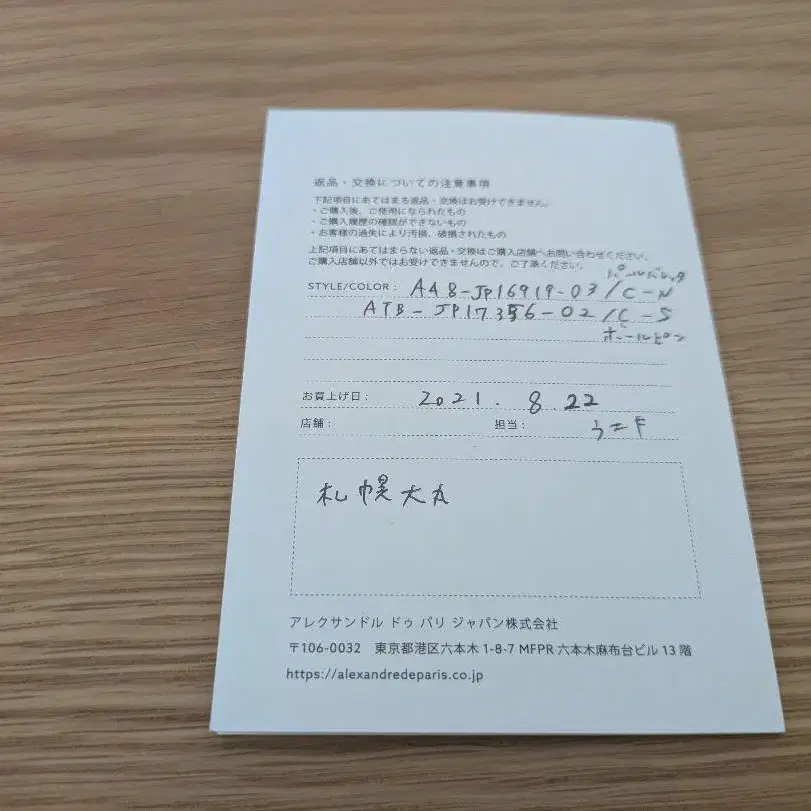 返品・交換についての注意事項
下記項目にあてはまる返品・交換はお受けできません。
・ご購入後、ご使用になられたもの
・ご購入履歴の確認ができないもの
・お客様の過失により汚損、破損されたもの
上記項目にあてはまらない返品・交換はご購入店舗へお問い合わせください。
ご購入店舗以外ではお受けできませんので、ご了承ください。
STYLE/COLOR: A48-JP16919-03/C-N
-JP17356-02/C-S
お買上げ日: 2021. 8. 22
店舗: 担当:
札幌大丸
アレクサンドル ドゥ パリ ジャパン株式会社
〒106-0032 東京都港区六本木1-8-7 MFPR 六本木麻布台ビル13階
https://alexandredeparis.co.jp